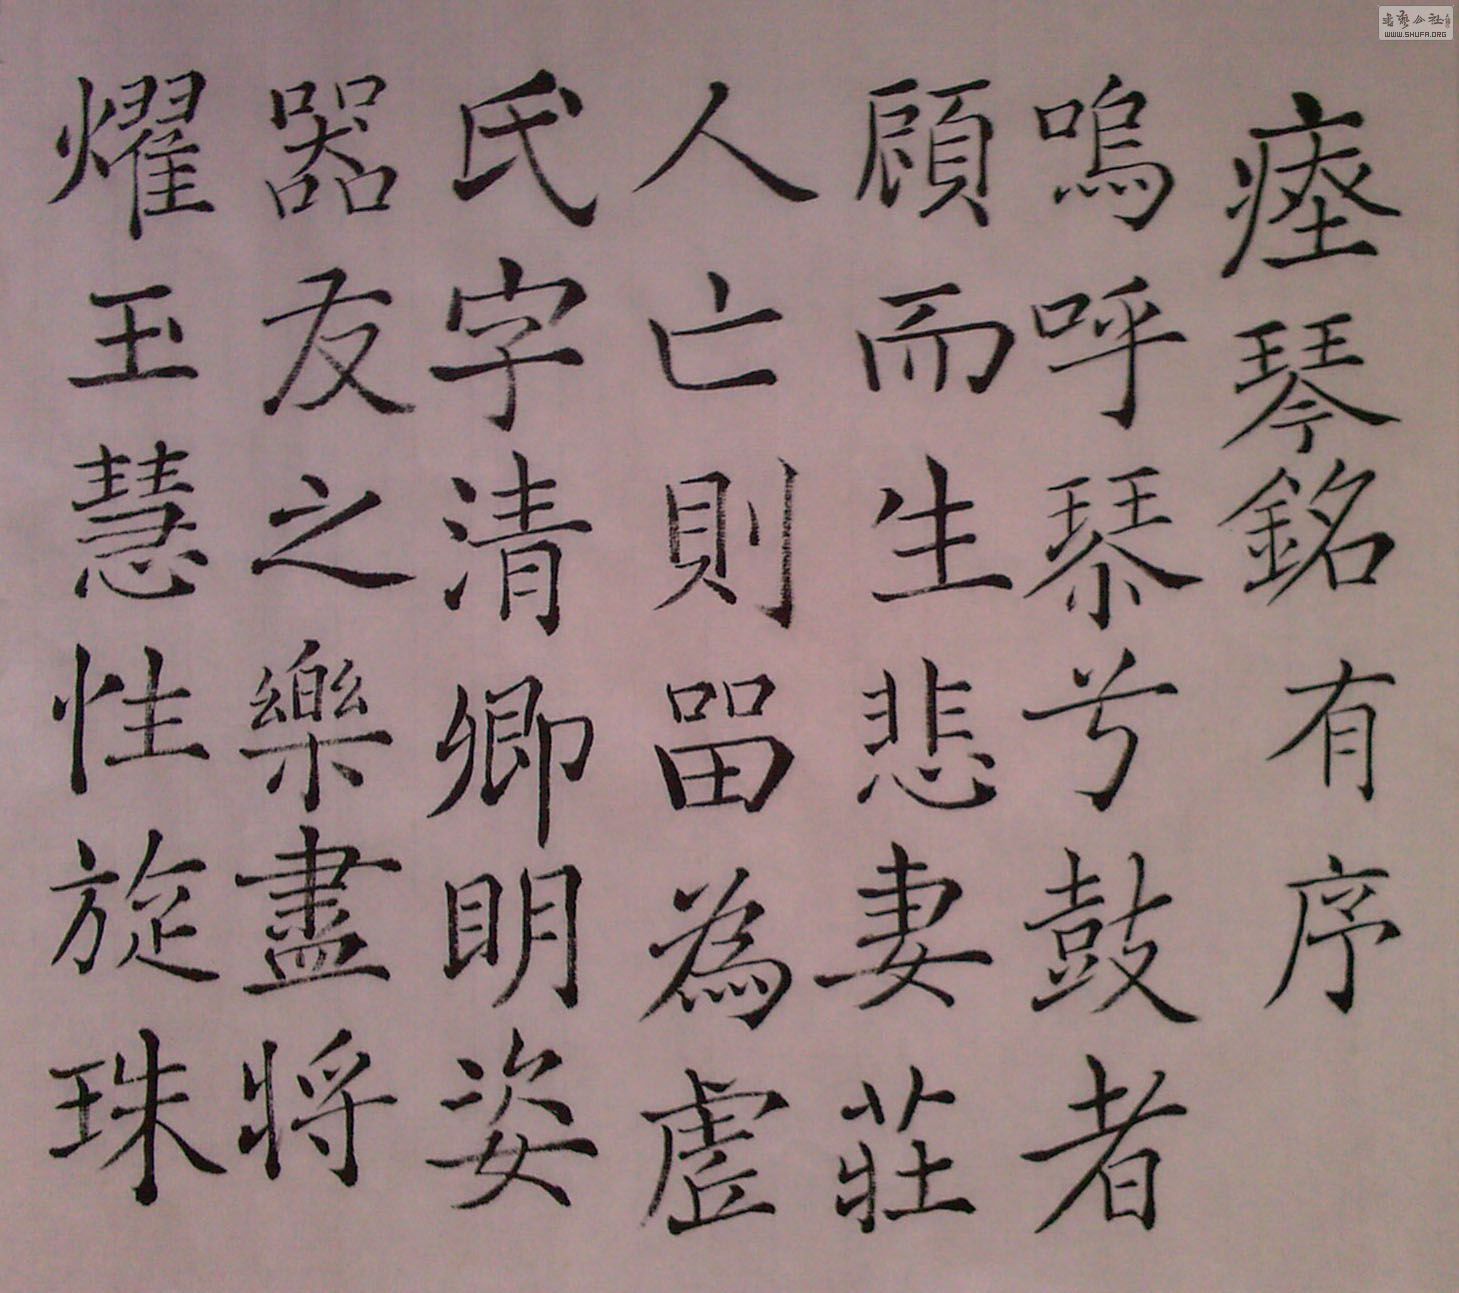 瘞琴銘有序
嗚呼琴兮鼓者
顧而生悲妻莊
人亡則留為虛
氏字清卿明姿
器友之樂盡將
燿玉慧性旋珠
WWW.SHUFA.ORG